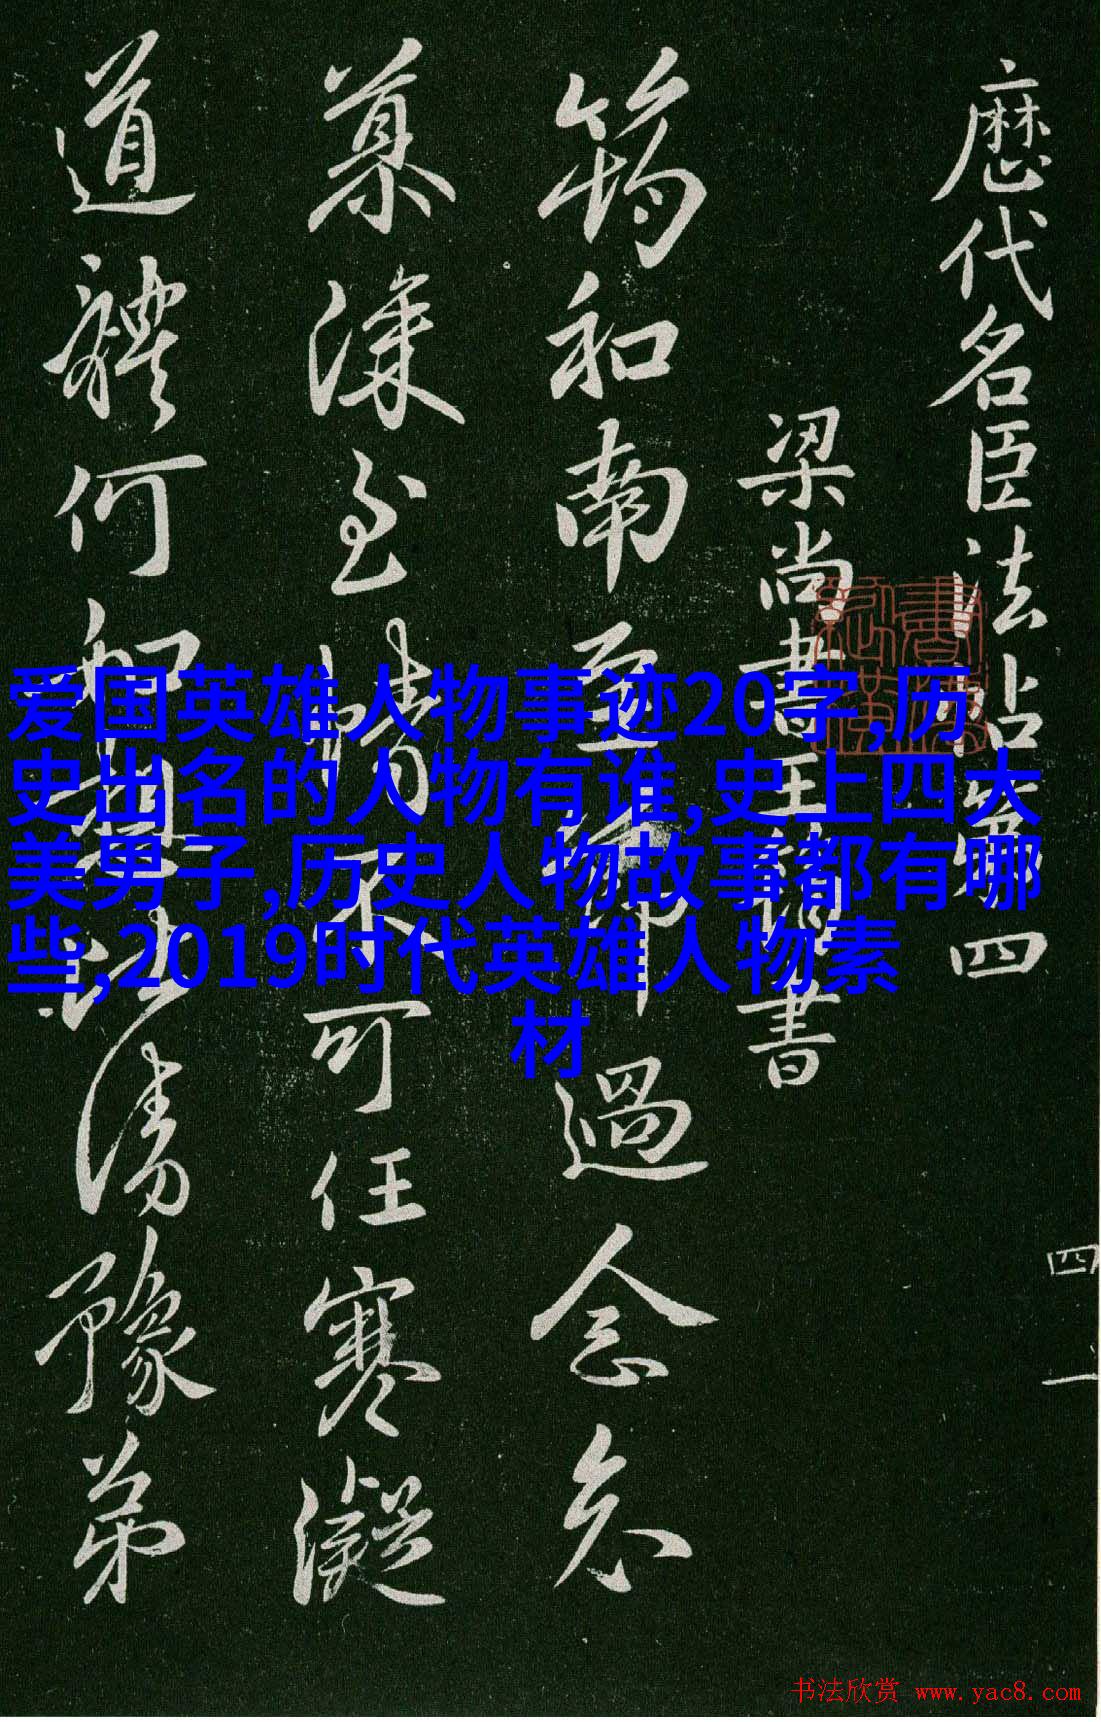 厯代名臣法帖第四
梁尚書王筠書
筠和南至節過念哀
慕深至情不可任寒凝
道體何如想比清豫弟
四
一
爱国英雄人物事迹20字,历
史出名的人物有谁,史上四大
美男子,历史人物故事都有哪
些,2019时代英雄人物素
材
书法欣赏 www.yac8.com